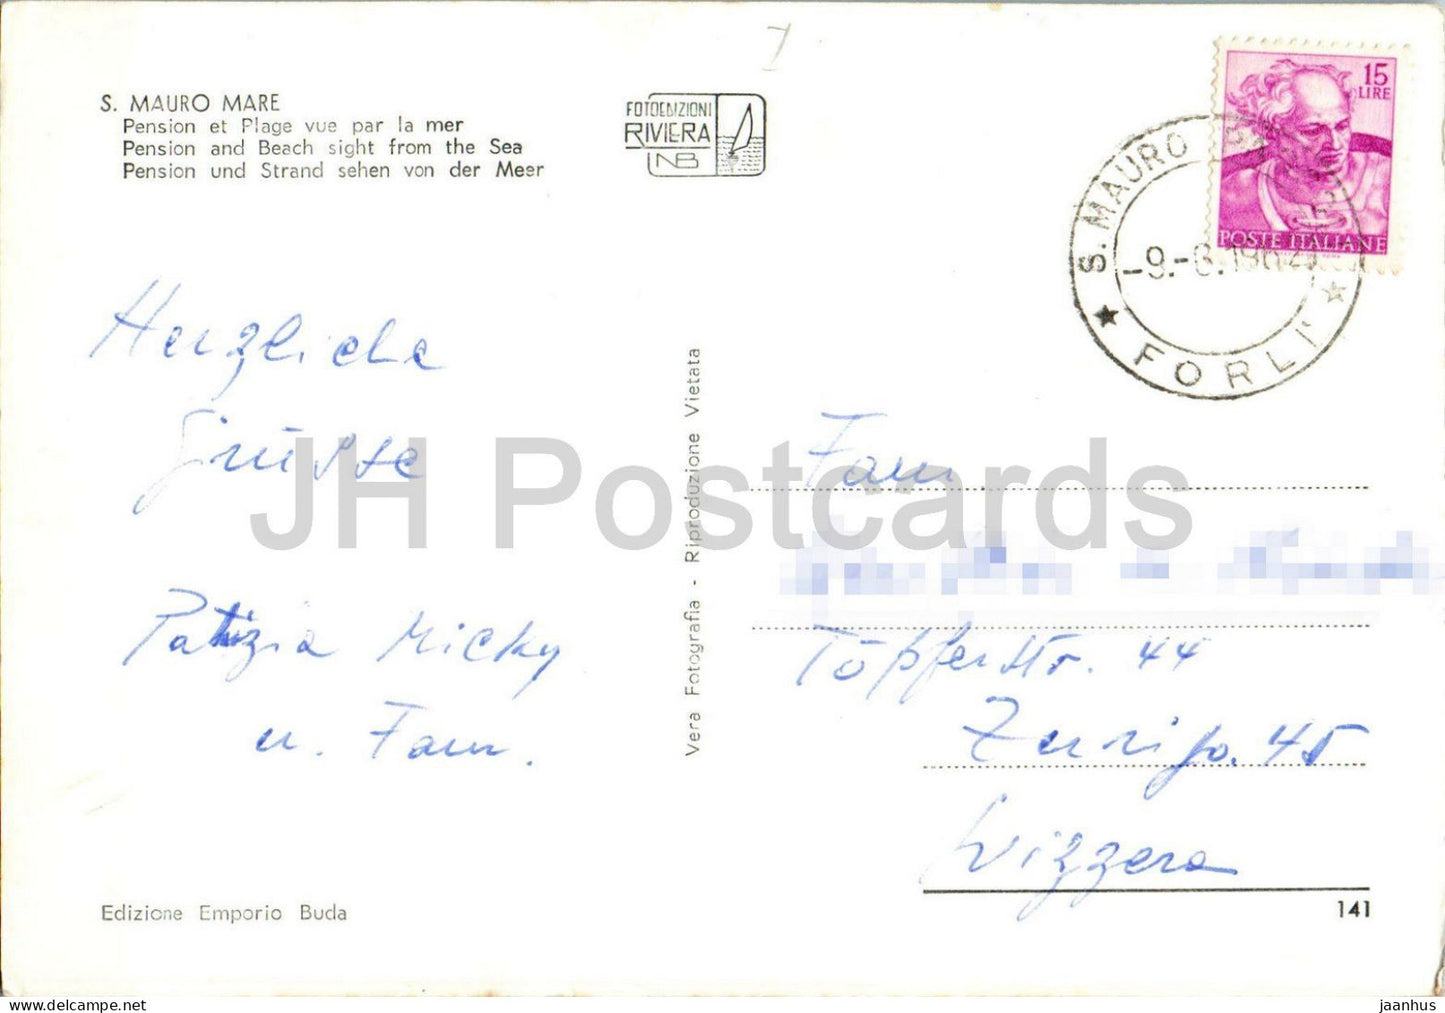 S. MAURO MARE
Pension et Plage vue par la mer
Pension and Beach sight from the Sea
Pension und Strand sehen von der Meer
FOTOEDIZIONI
RIVIERA
15
LIRE
POSTE ITALIANE
S. MAURO
FORLI'
Herzliche
Grüsse
Patizia Micky
u. Fam.
Vera Fotografia - Riproduzione Vietata
Fam.
Töpferstr. 44
Zurigo. 45
Svizzera
Edizione Emporio Buda
141
JH Postcards
jaanhus @ HipPostcard.com